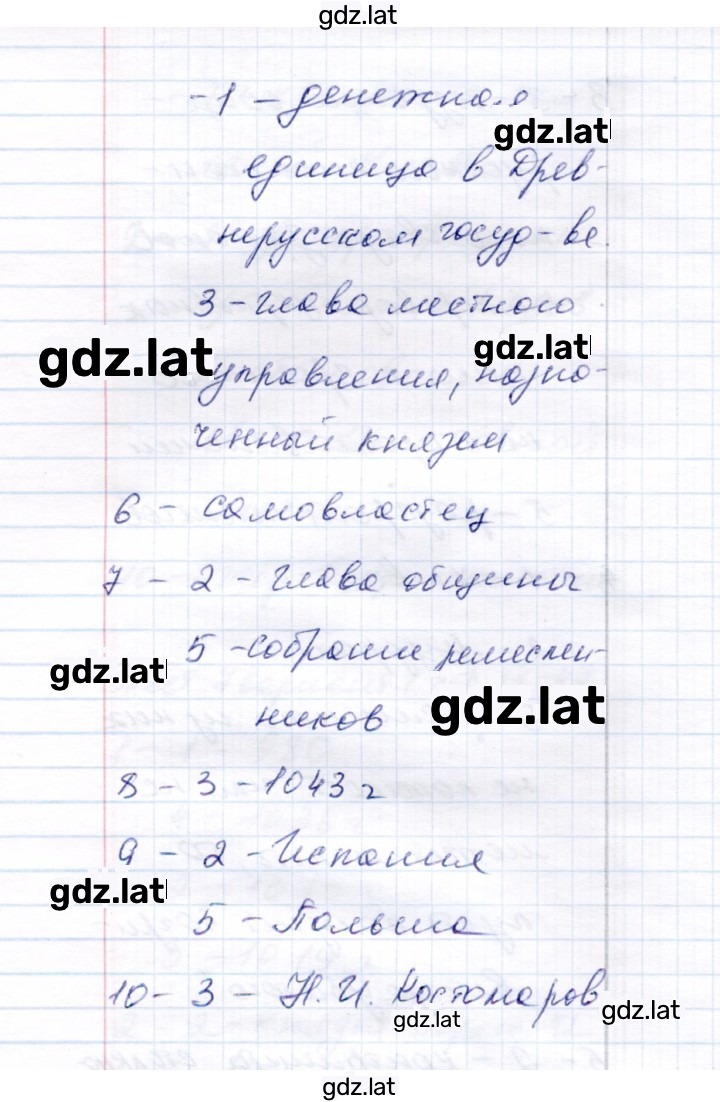 gdz.lat
-1 - денежная
gdz.lat
единица в Древ-
нерусском госуд-ве.
3 - глава местного
gdz.lat
gdz.lat
управления, назна-
ченный князем
6 - самовластец
7 - 2 - глава общины
5 - собрание ремеслен-
gdz.lat
ников
gdz.lat
8 - 3 - 1043 г
9 - 2 - Испания
gdz.lat
5 - Польша
10 - 3 - Н. И. Костомаров
gdz.lat
gdz.lat
gdz.lat